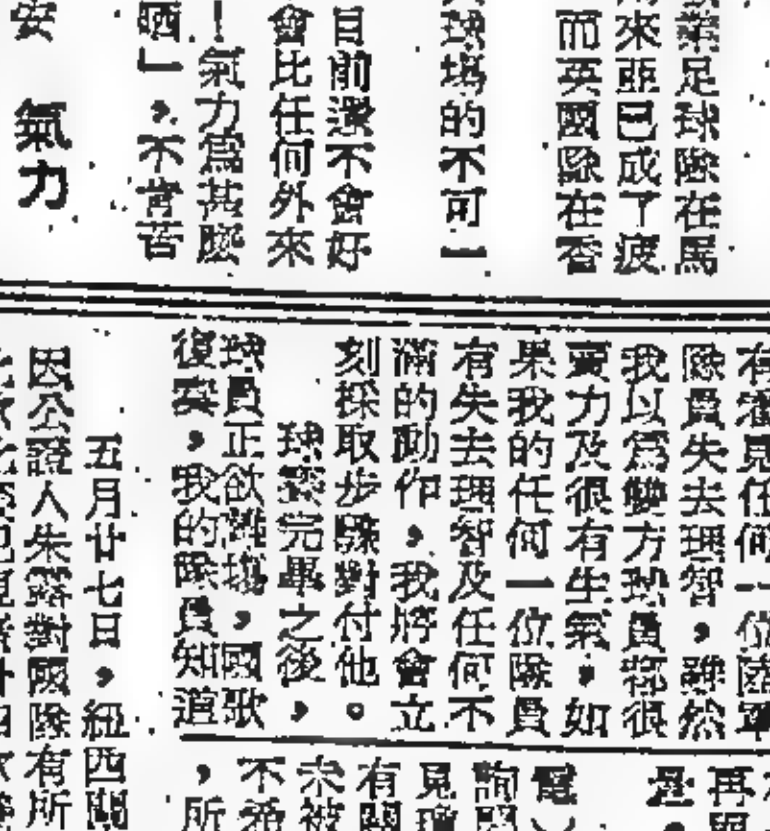 業足球隊在馬
來亞已成了疲
而英國隊在香
球場的不可一
目前還不會好
會比任何外來
！氣力爲甚麽
晒」，不肯苦
安 氣力
有
見任何一位
隊員失去理智，雖然
我以爲雙方球員都很
賣力及很有生氣，如
果我的任何一位隊員
有失去理智及任何不
滿的動作，我將會立
刻採取步驟對付他。
球賽完畢之後，
球員正欲離場，國歌
復奏，我的隊員知道
五月廿七日，紐西蘭
因公證人朱 對國隊有所
再
是
電
詢
見
有關
未被
不希
，所